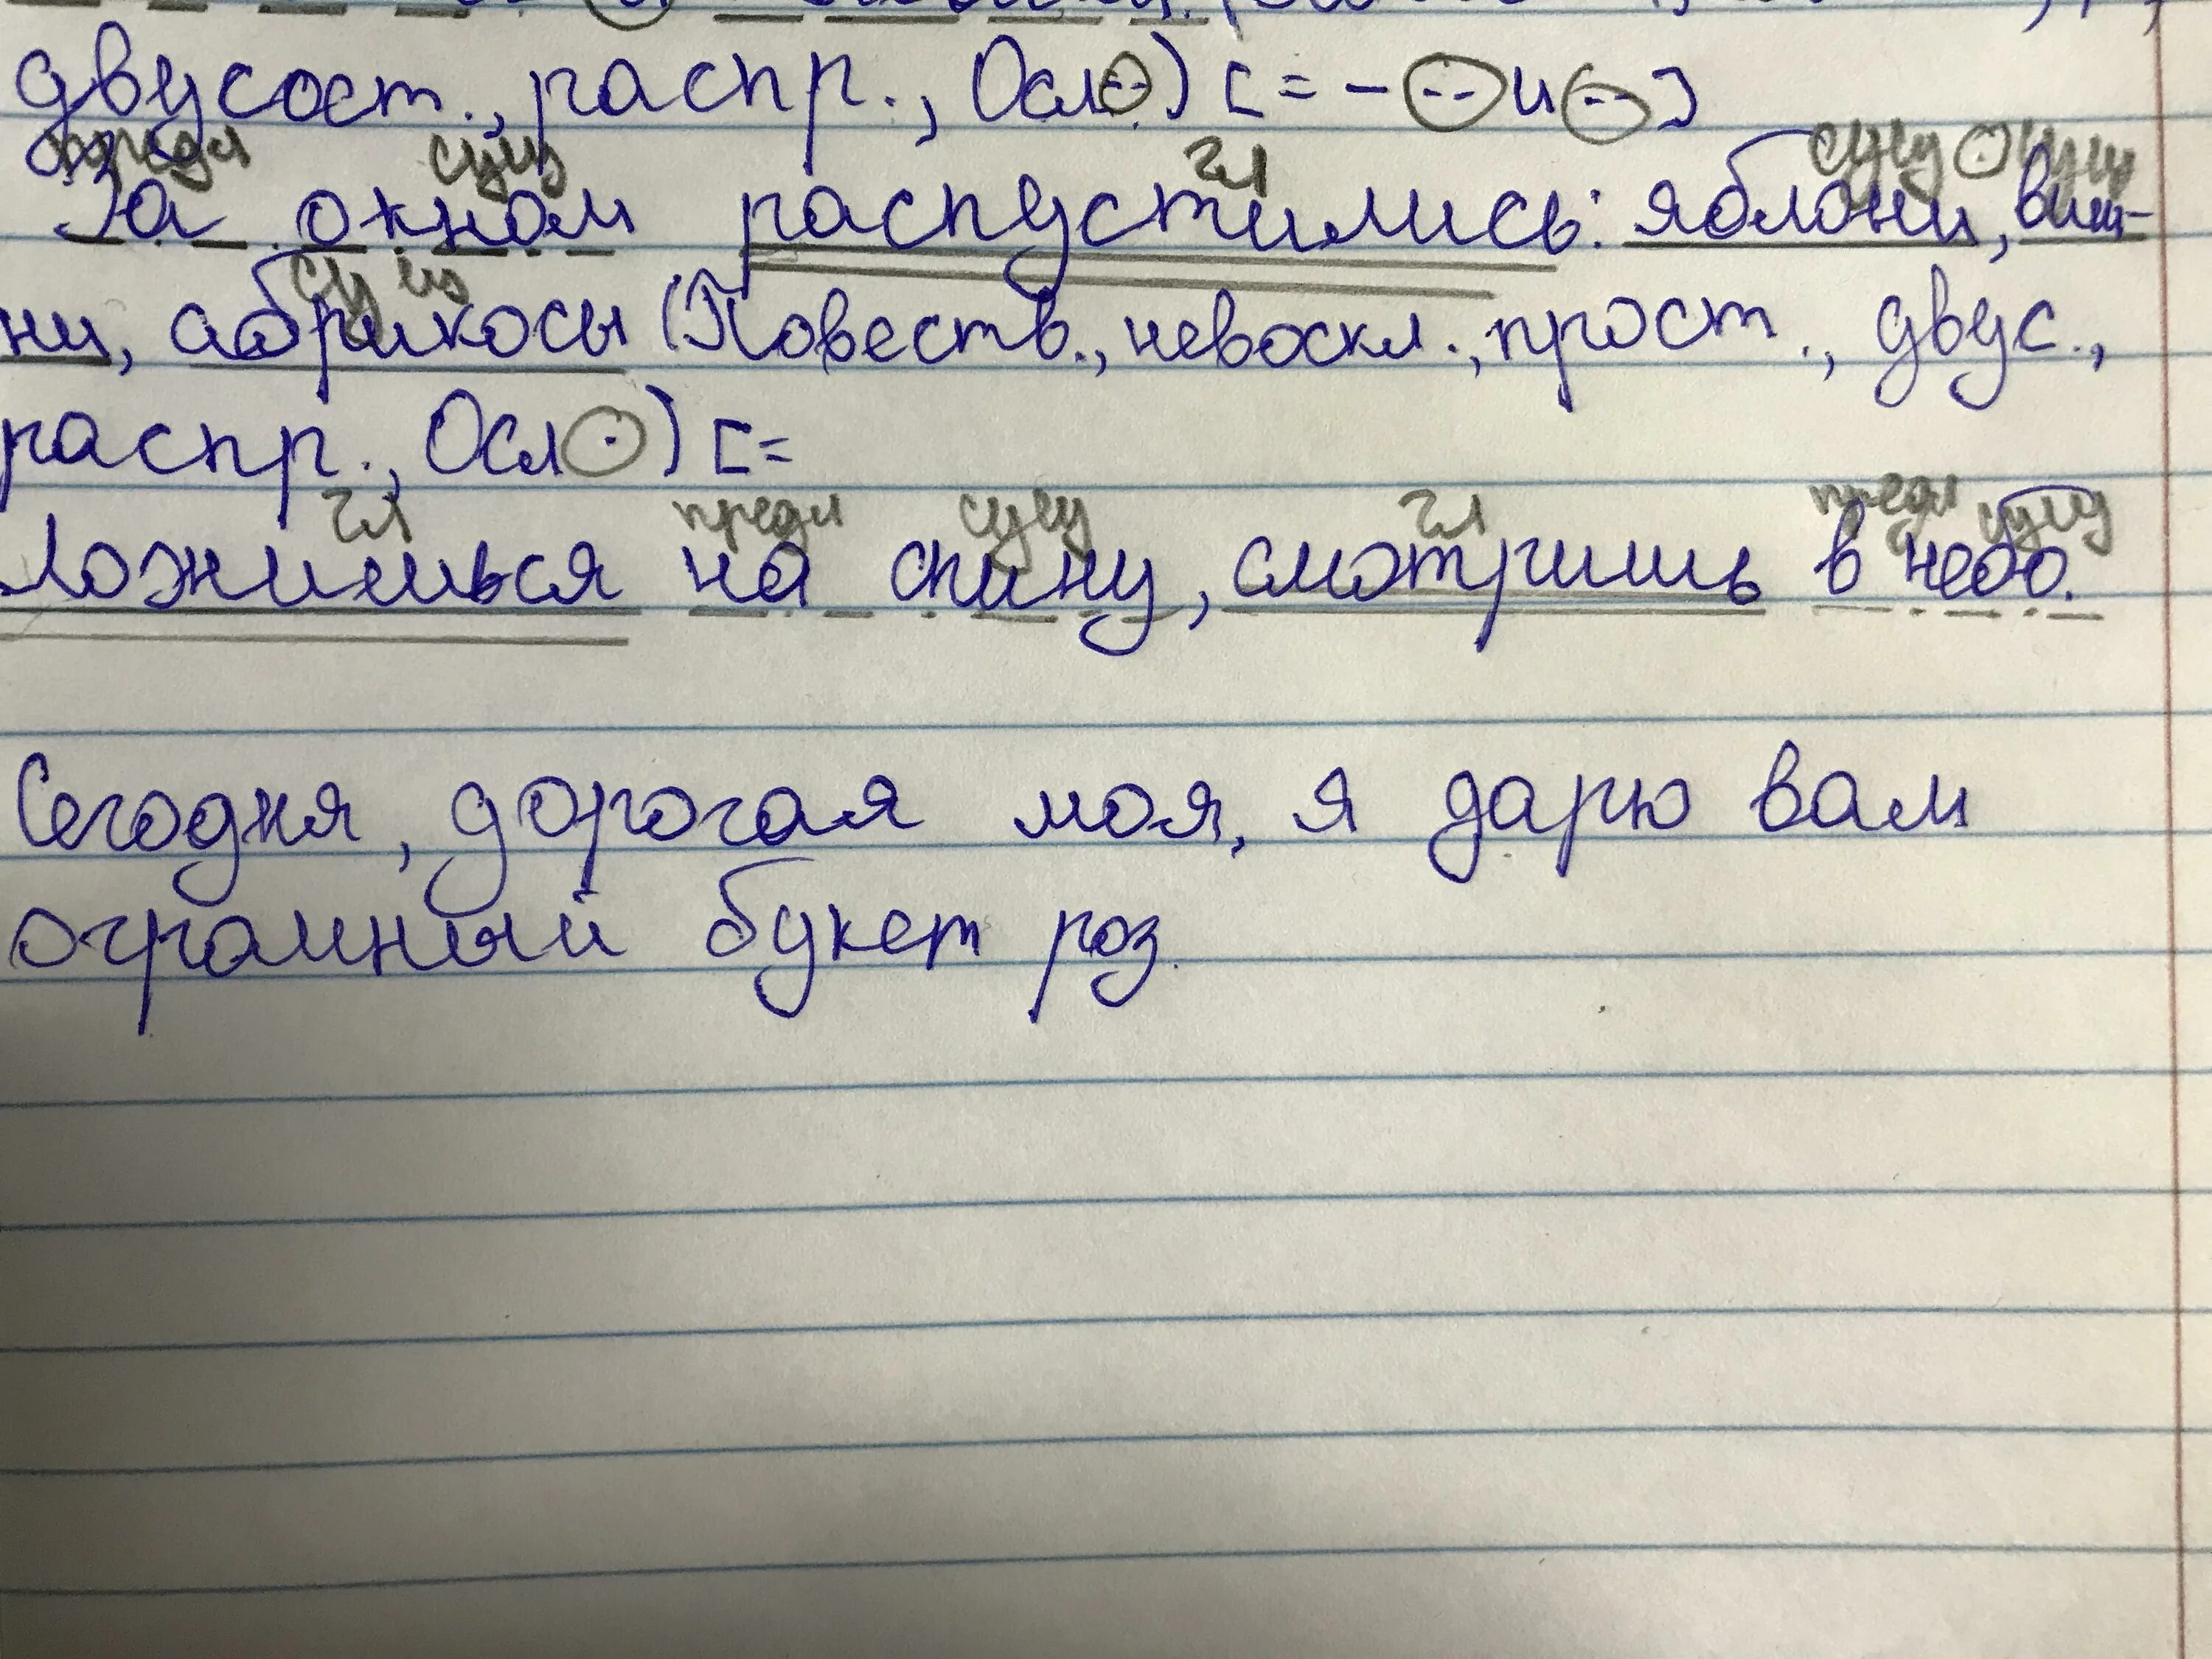 двусост., распр., Осл ⊙) [= - ⊙ и ⊙]
предл сущ гл сущ сущ
За окном распустились: яблони, виш-
сущ
ни, абрикосы (Повеств., невоскл., прост., двус.,
распр., Осл ⊙) [=
гл предл сущ гл предл сущ
Ложишься на спину, смотришь в небо.
Сегодня, дорогая моя, я дарю вам
огромный букет роз.